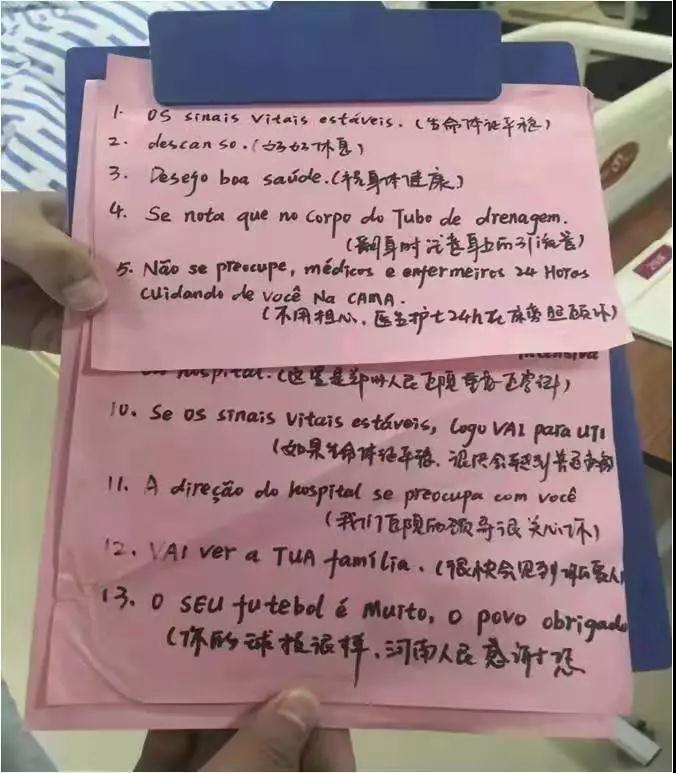 1. OS sinais vitais estáveis. (生命体征平稳)
2. descanso. (好好休息)
3. Desego boa saúde. (祝身体健康)
4. Se nota que no corpo do Tubo de drenagem.
(翻身时注意身上的引流管)
5. Não se preocupe, médicos e enfermeiros 24 Horas
cuidando de você Na CAMA.
(不用担心, 医生护士24h在床旁照顾你)
intensiva
do hospital. (这里是郑州人民医院重症医学科)
10. Se os sinais vitais estáveis, logo VAI para UTI
(如果生命体征平稳, 很快会转到普通病房
11. A direção do hospital se preocupa com você
(我们医院的领导很关心你)
12. VAI ver a TUA família. (很快会见到你的家人
13. O SEU futebol é Muito, o povo obrigado
(你的球技很棒, 河南人民感谢您